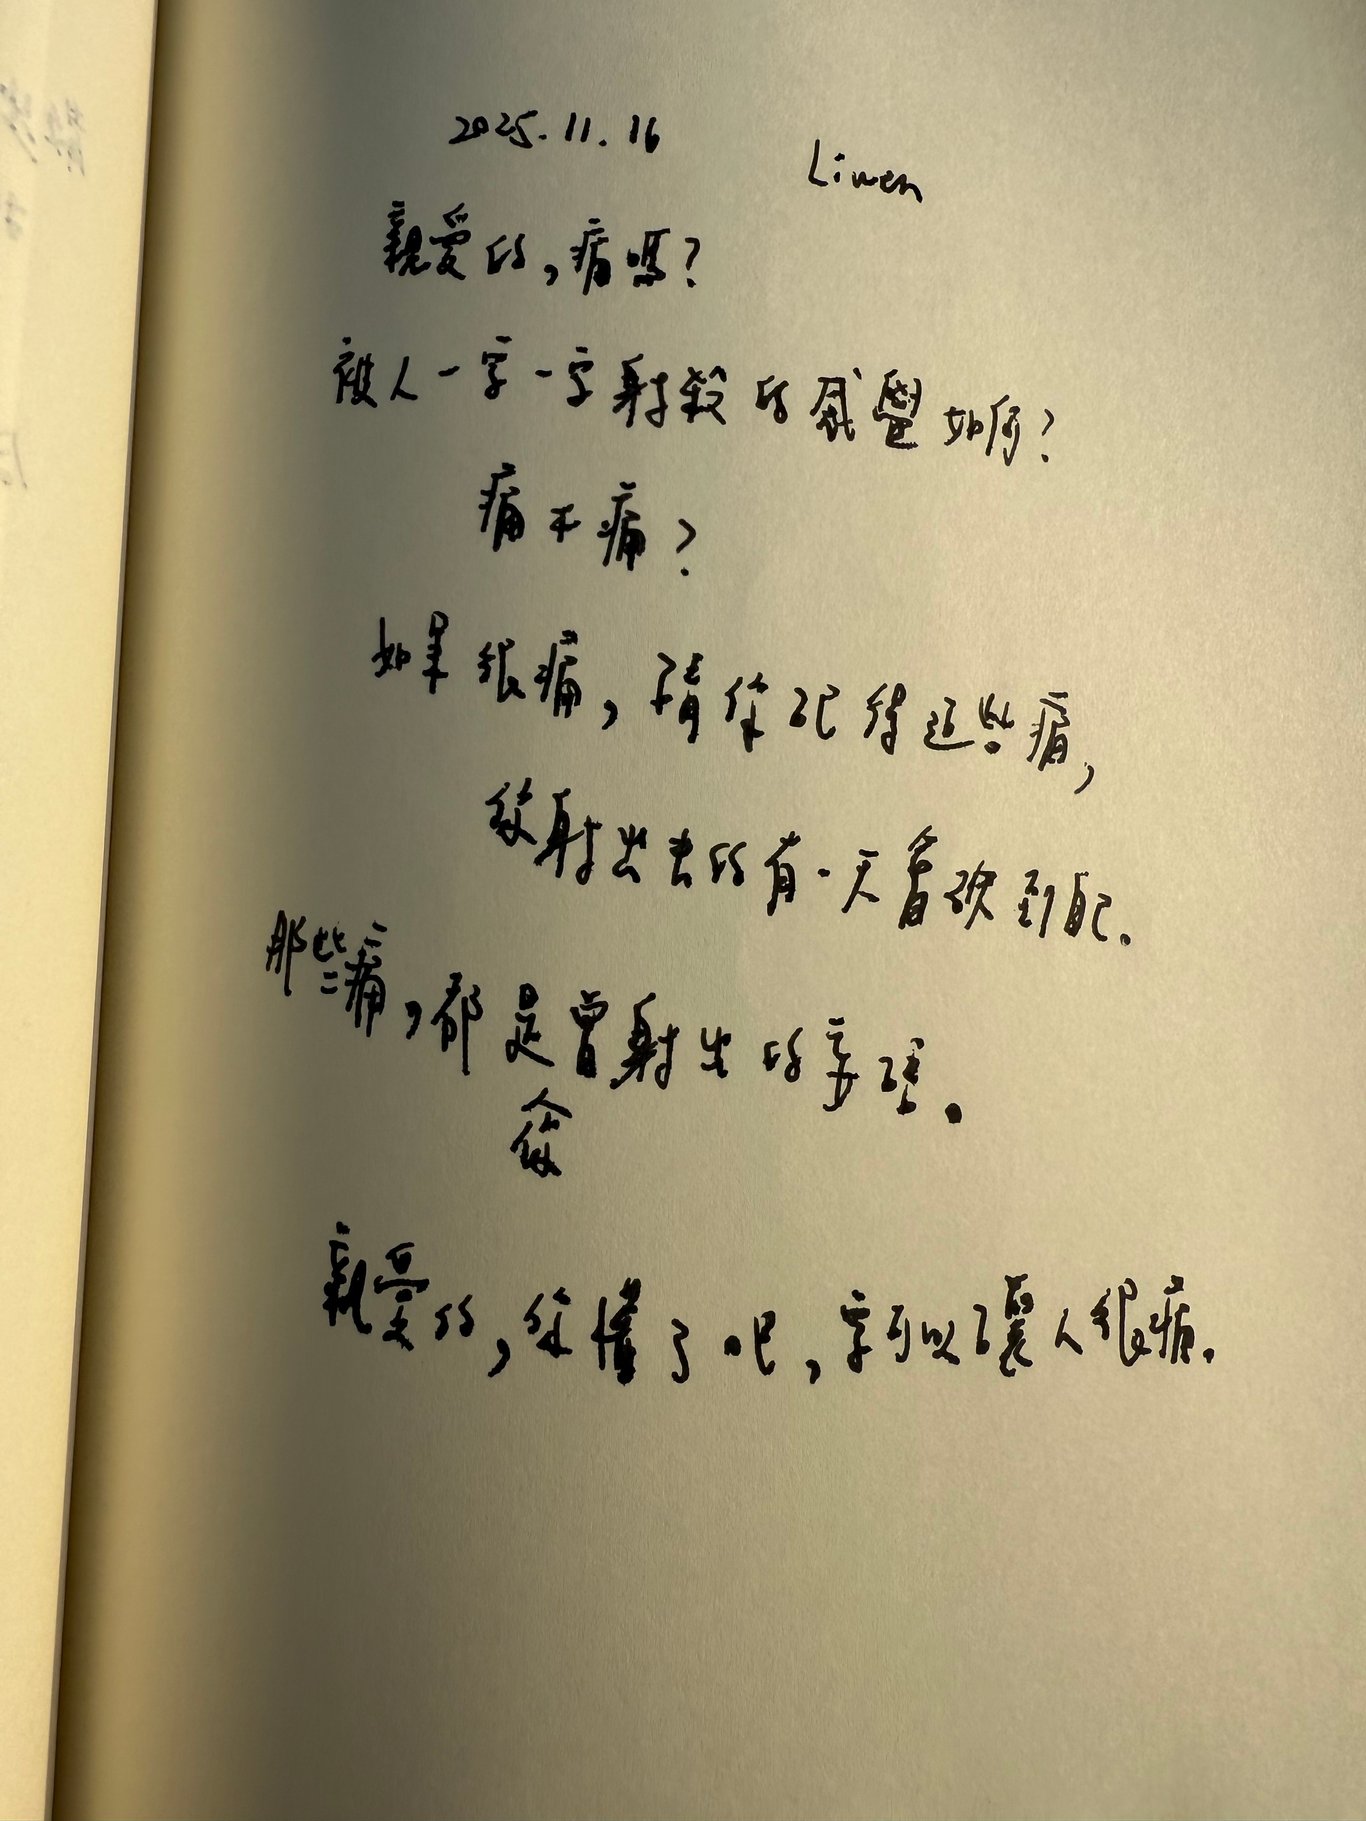 2025.11.16 Liwen
親愛的,痛嗎?
被人一字一字射殺的感覺如何?
痛不痛?
如果很痛,請你記得這些痛,
你射出去的有一天會砍到自己.
那些痛,都是曾射出的妄語。
你
親愛的,你懂了吧,字可以讓人很痛.